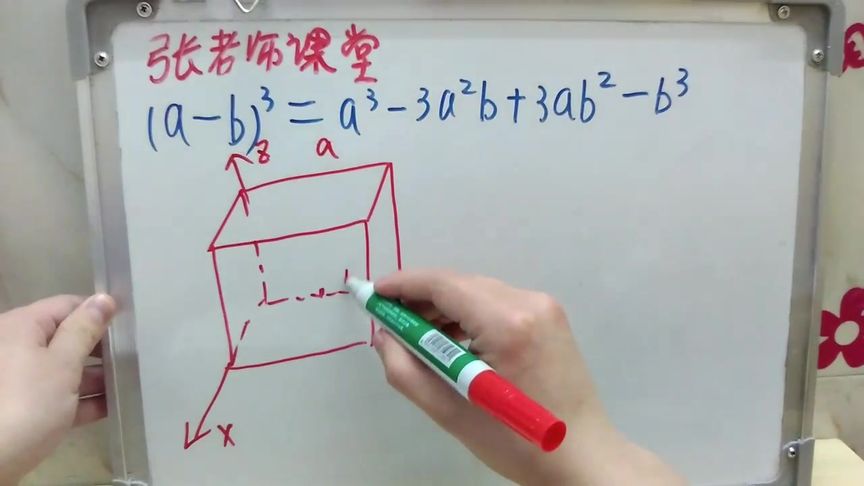 张老师课堂
(a-b)³=a³-3a²b+3ab²-b³
z a
x